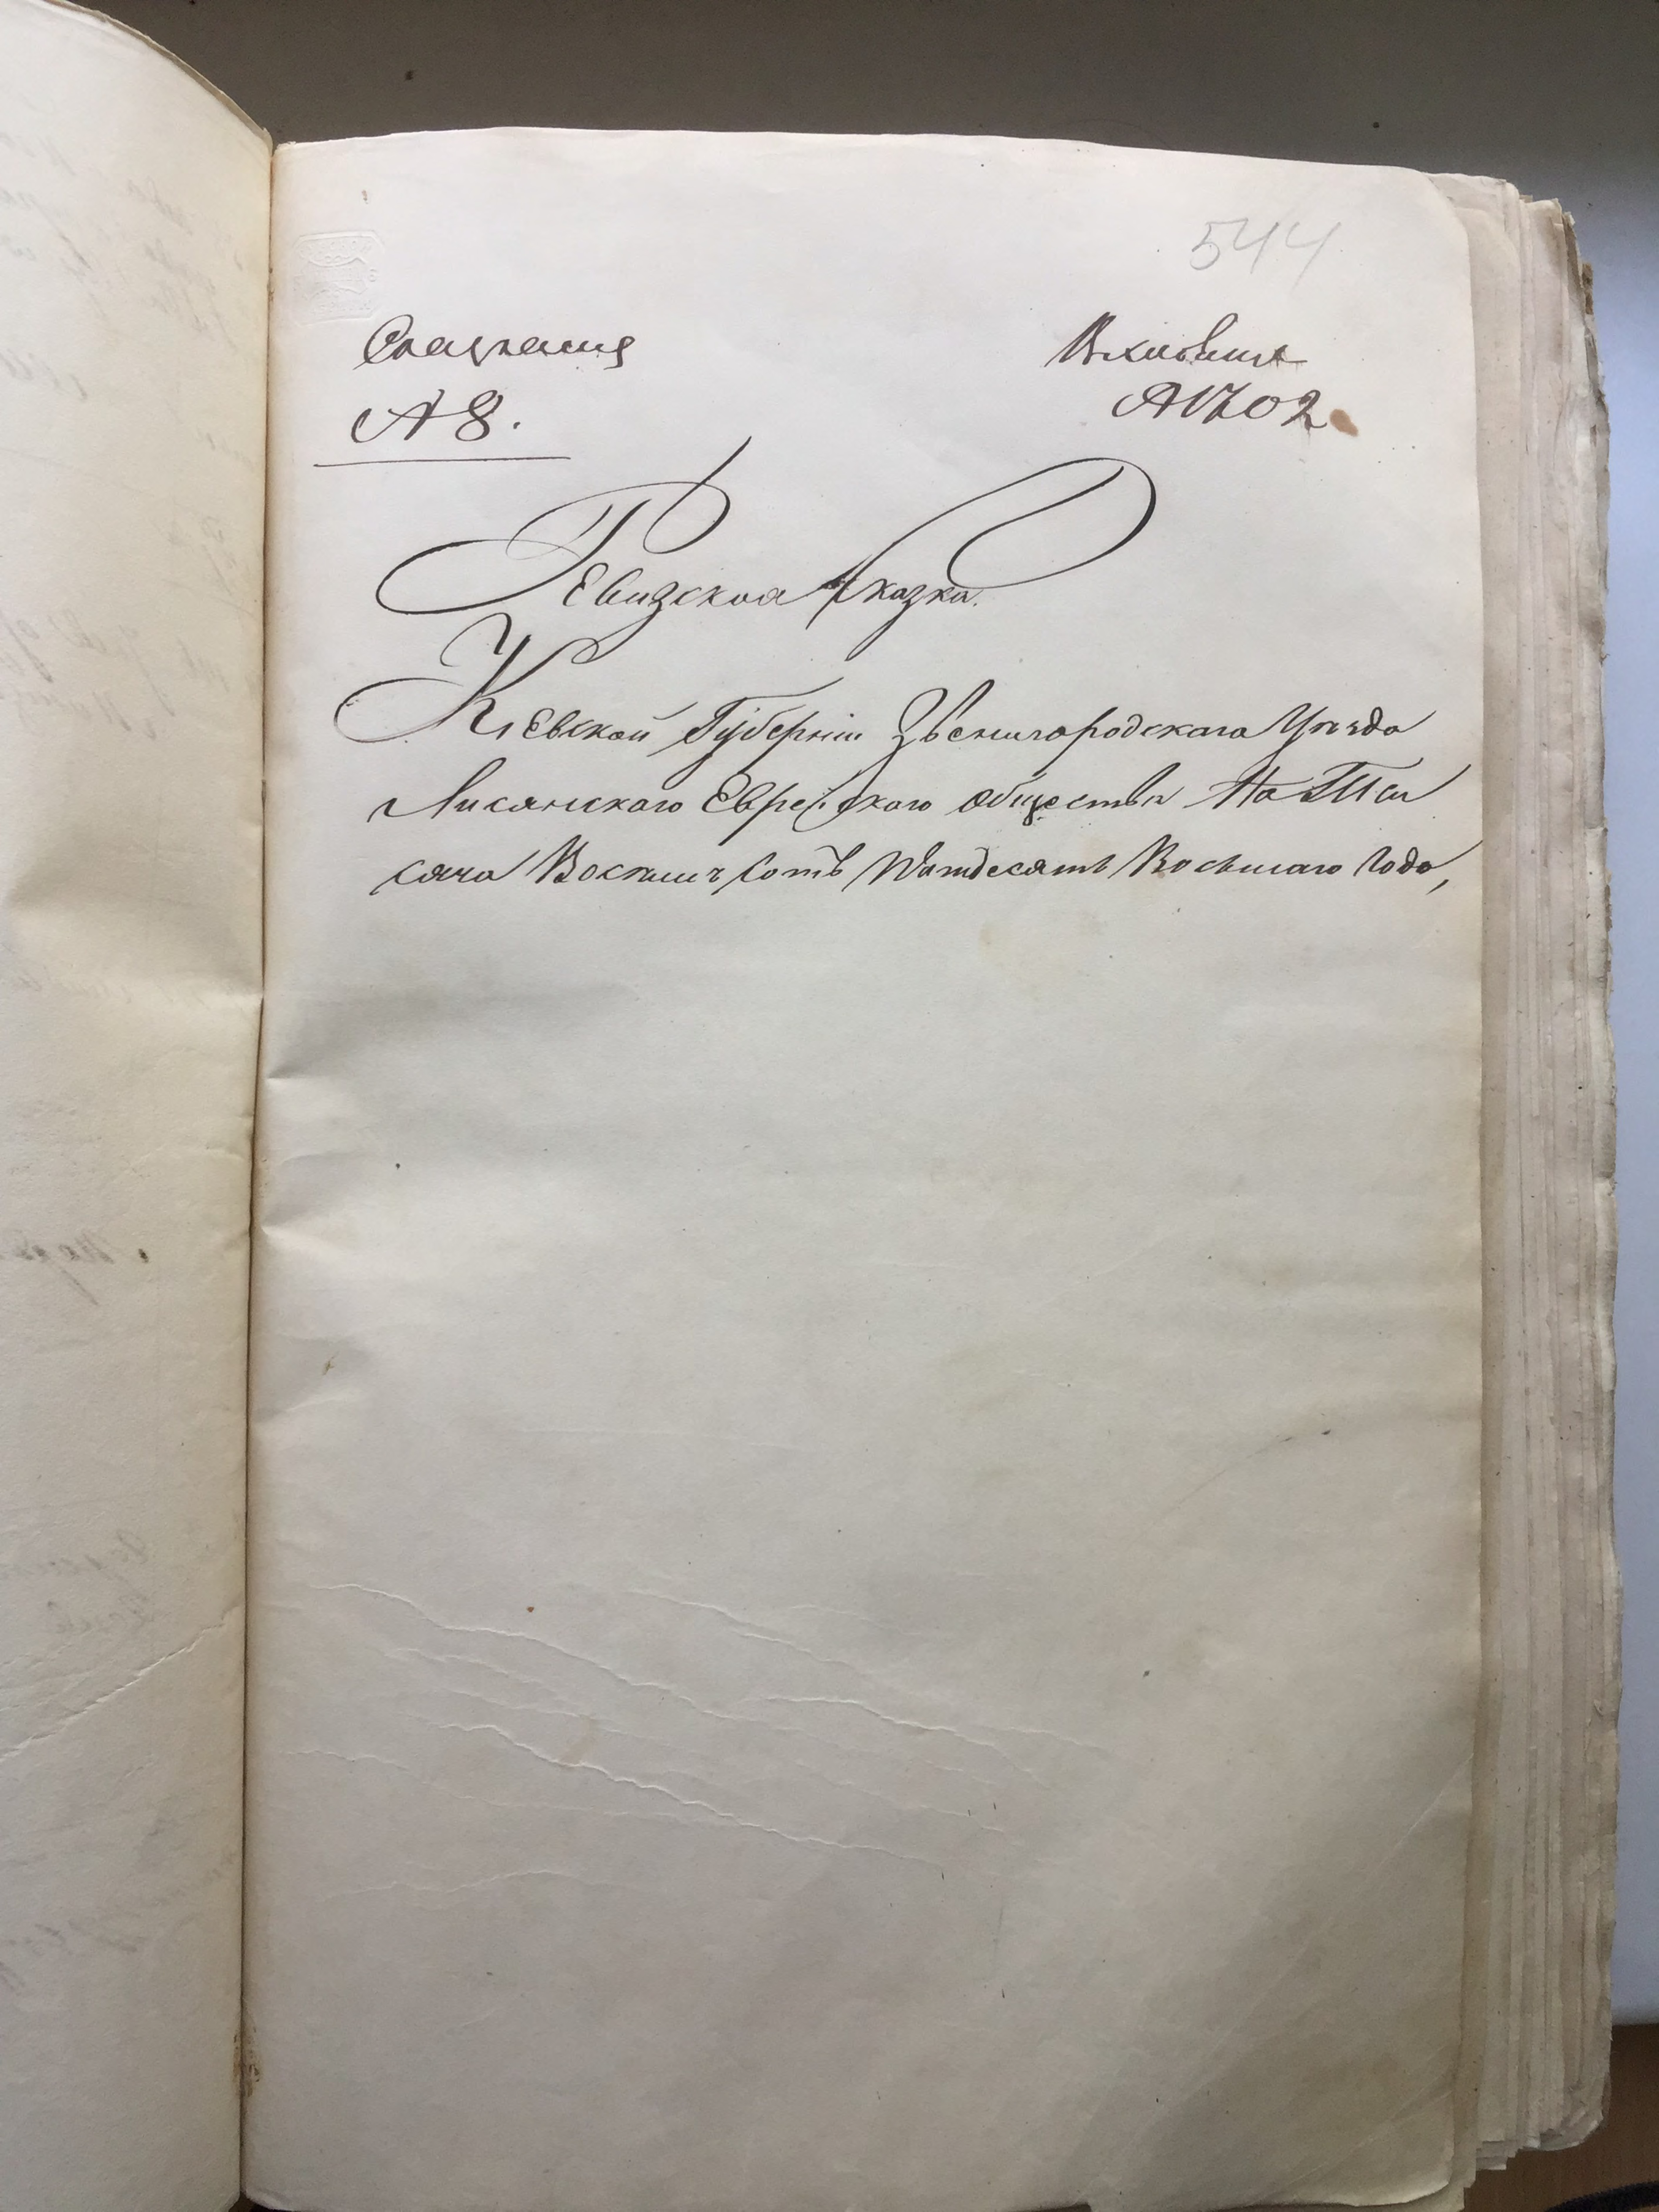 544
Сказка
№ 8.
№ 1702
Ревизская Сказка.
Кіевской Губерніи Звенигородскаго Уѣзда
Лисянскаго Еврейскаго Общества На Тыся
сяча Восемь Сотъ Пятдесятъ Восьмаго Года,